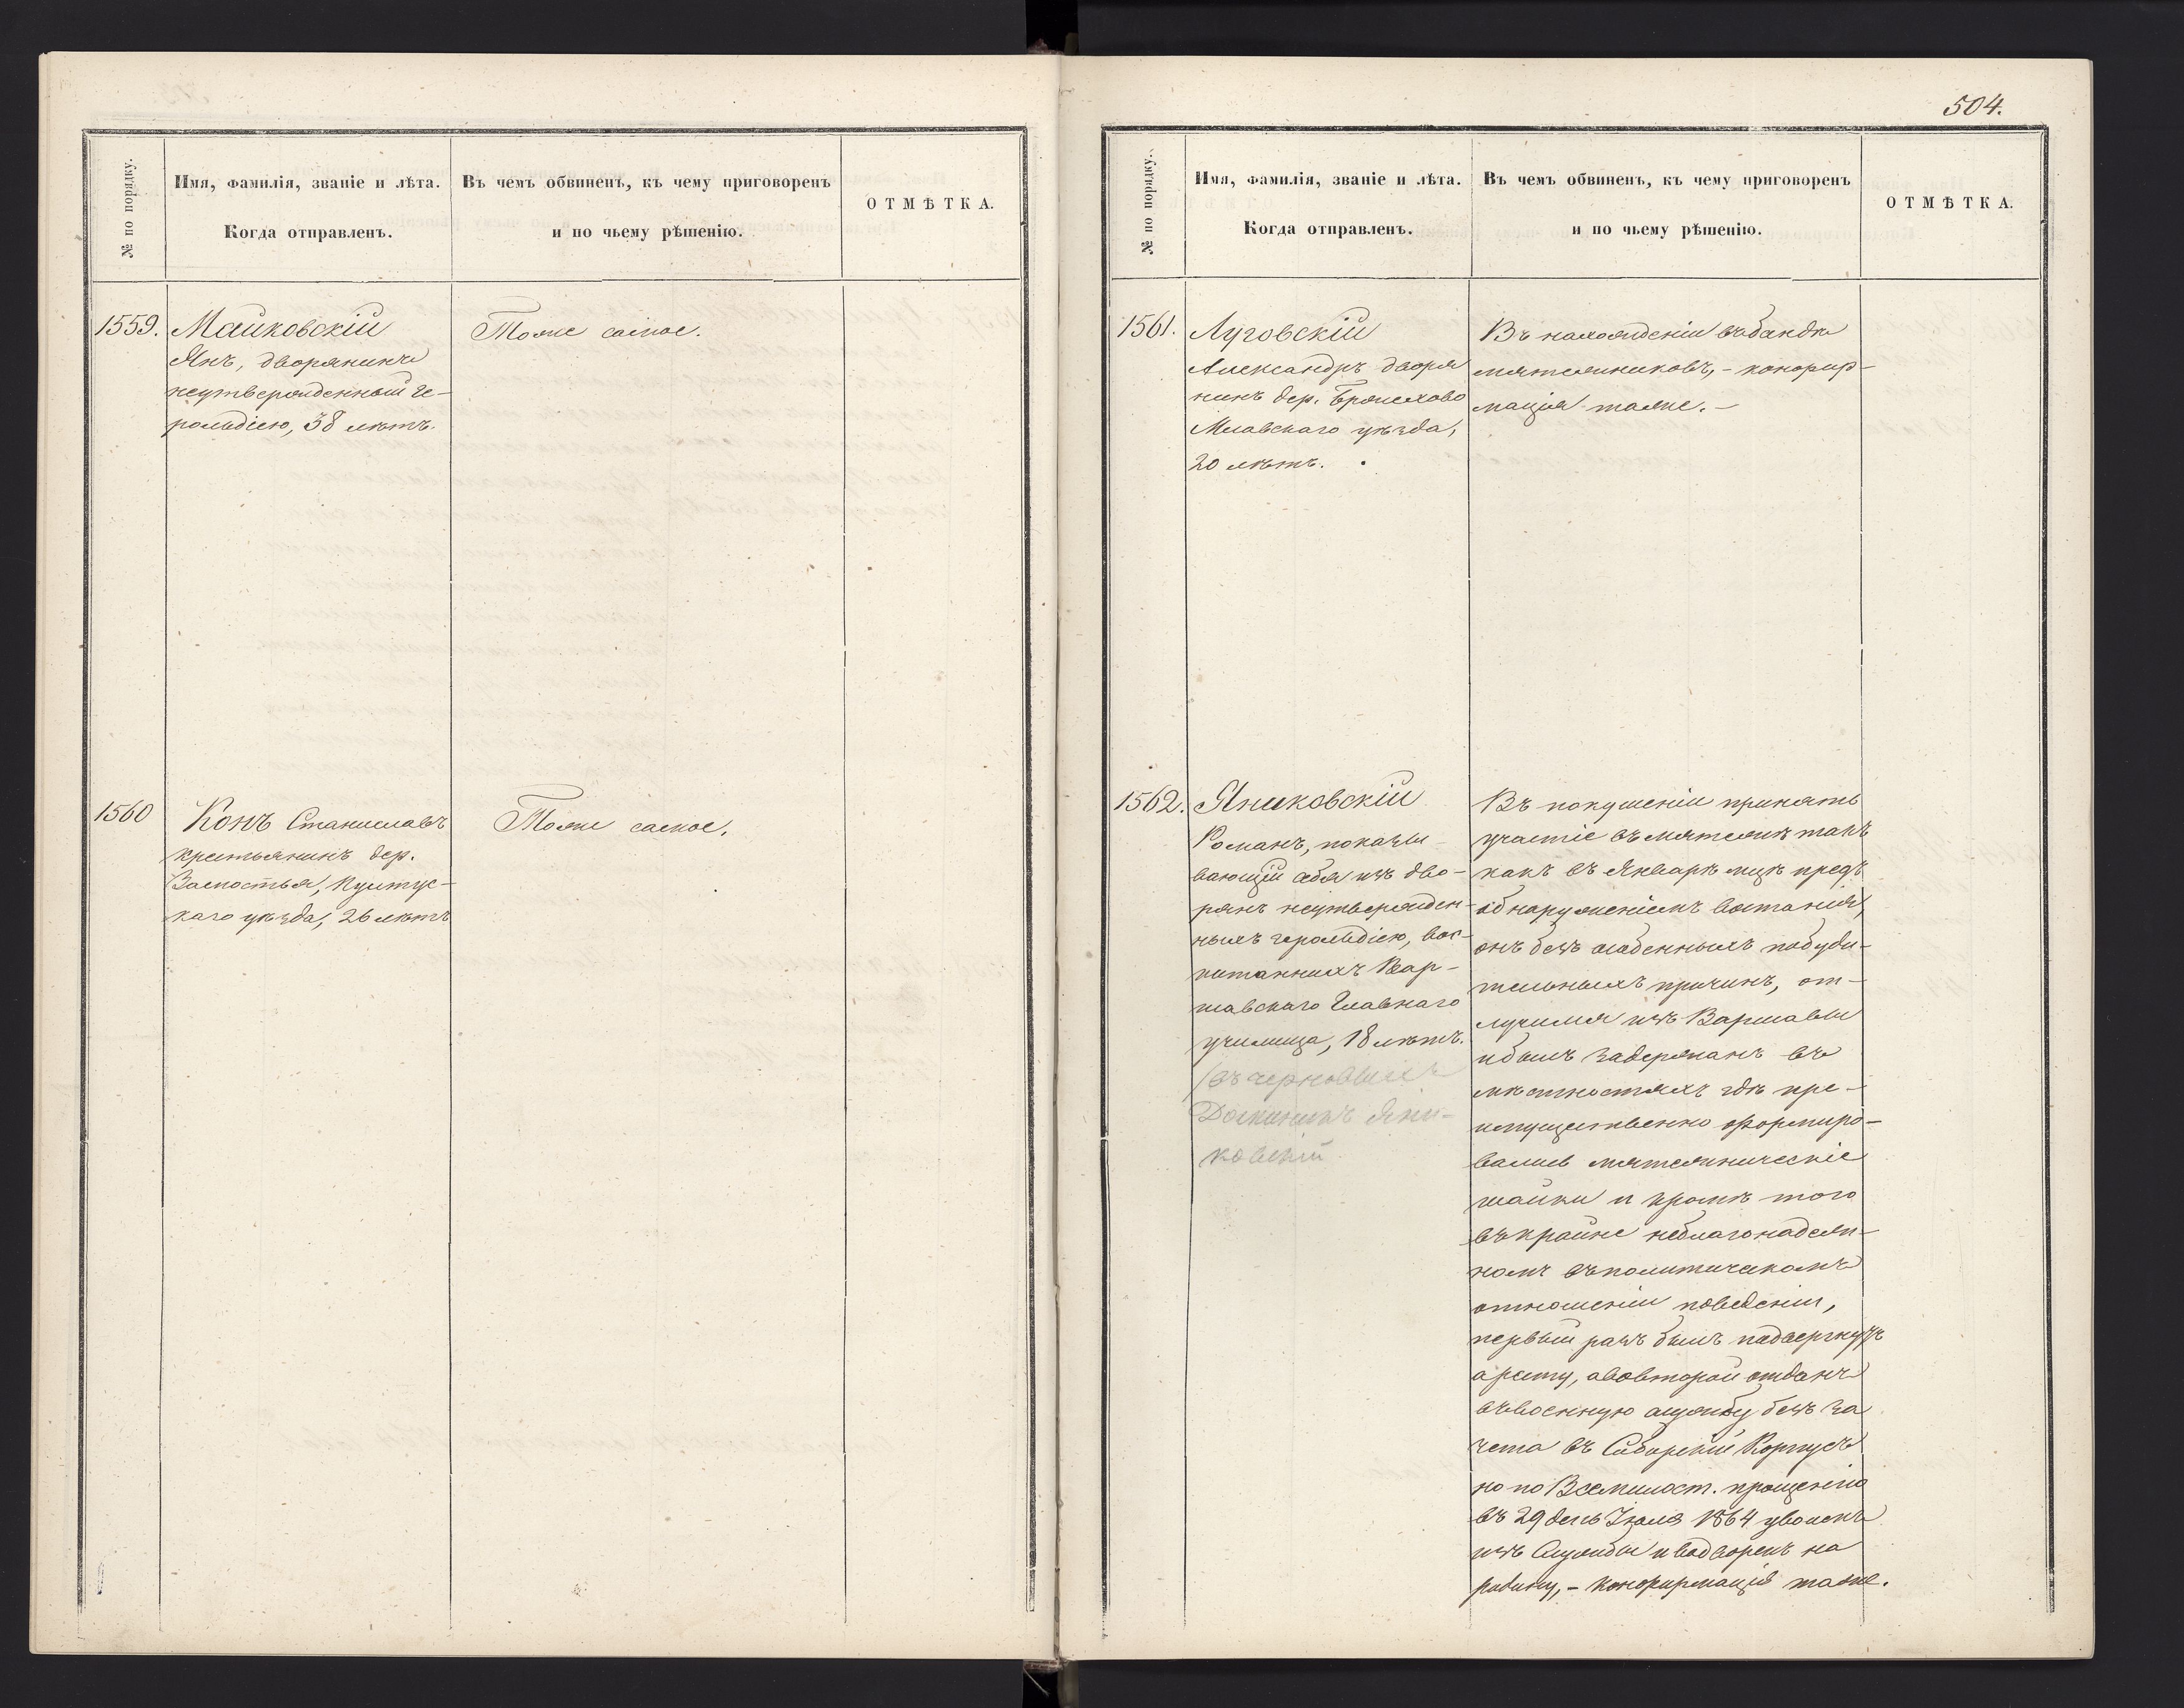 № по порядку.
Имя, фамилія, званіе и лѣта.
Когда отправленъ.
Въ чемъ обвиненъ, къ чему приговоренъ
и по чьему рѣшенію.
ОТМѢТКА.
1559.
Маиковскій
Янъ, дворянинъ
неутвержденный ге-
рольдіею, 38 лѣтъ.
Тоже самое.
1560
Конъ Станиславъ
крестьянинъ дер.
Замостья, Пултус-
каго уѣзда, 26 лѣтъ
Тоже самое.
504.
№ по порядку.
Имя, фамилія, званіе и лѣта.
Когда отправленъ.
Въ чемъ обвиненъ, къ чему приговоренъ
и по чьему рѣшенію.
ОТМѢТКА.
1561.
Луговскій
Александръ дворя
нинъ дер.
Млавскаго уѣзда,
20 лѣтъ.
Въ нахожденіи въ бандѣ
мятежниковъ, - конфир-
мація таже. -
1562.
Яниковскій
Романъ, показы-
вающій себя изъ дво-
рянъ неутвержден-
ныхъ герольдіею, вос-
питанникъ Вар-
шавскаго Главнаго
училища, 18 лѣтъ.
(въ черновыхъ
Доминикъ Яни-
ковскій
Въ покушеніи принять
участіе въ мятежѣ такъ
какъ въ Январѣ мцѣ предъ
обнаруженіемъ востанія,
онъ безъ особенныхъ побуди-
тельныхъ причинъ, от-
лучился изъ Варшавы
и былъ задержанъ въ
мѣстностяхъ гдѣ пре-
имущественно формиро-
вались мятежническіе
шайки и кромѣ того
въ крайне неблагонадеж-
номъ въ политическомъ
отношеніи поведеніи,
первый разъ былъ подвергнутъ
аресту, а во второй отданъ
въ военную службу безъ за
чета въ Сибирскій Корпусъ
но по Всемилост. прощенію
въ 29 день Іюля 1864 уволенъ
изъ Службы и водворенъ на
родину, - конфирмація таже.